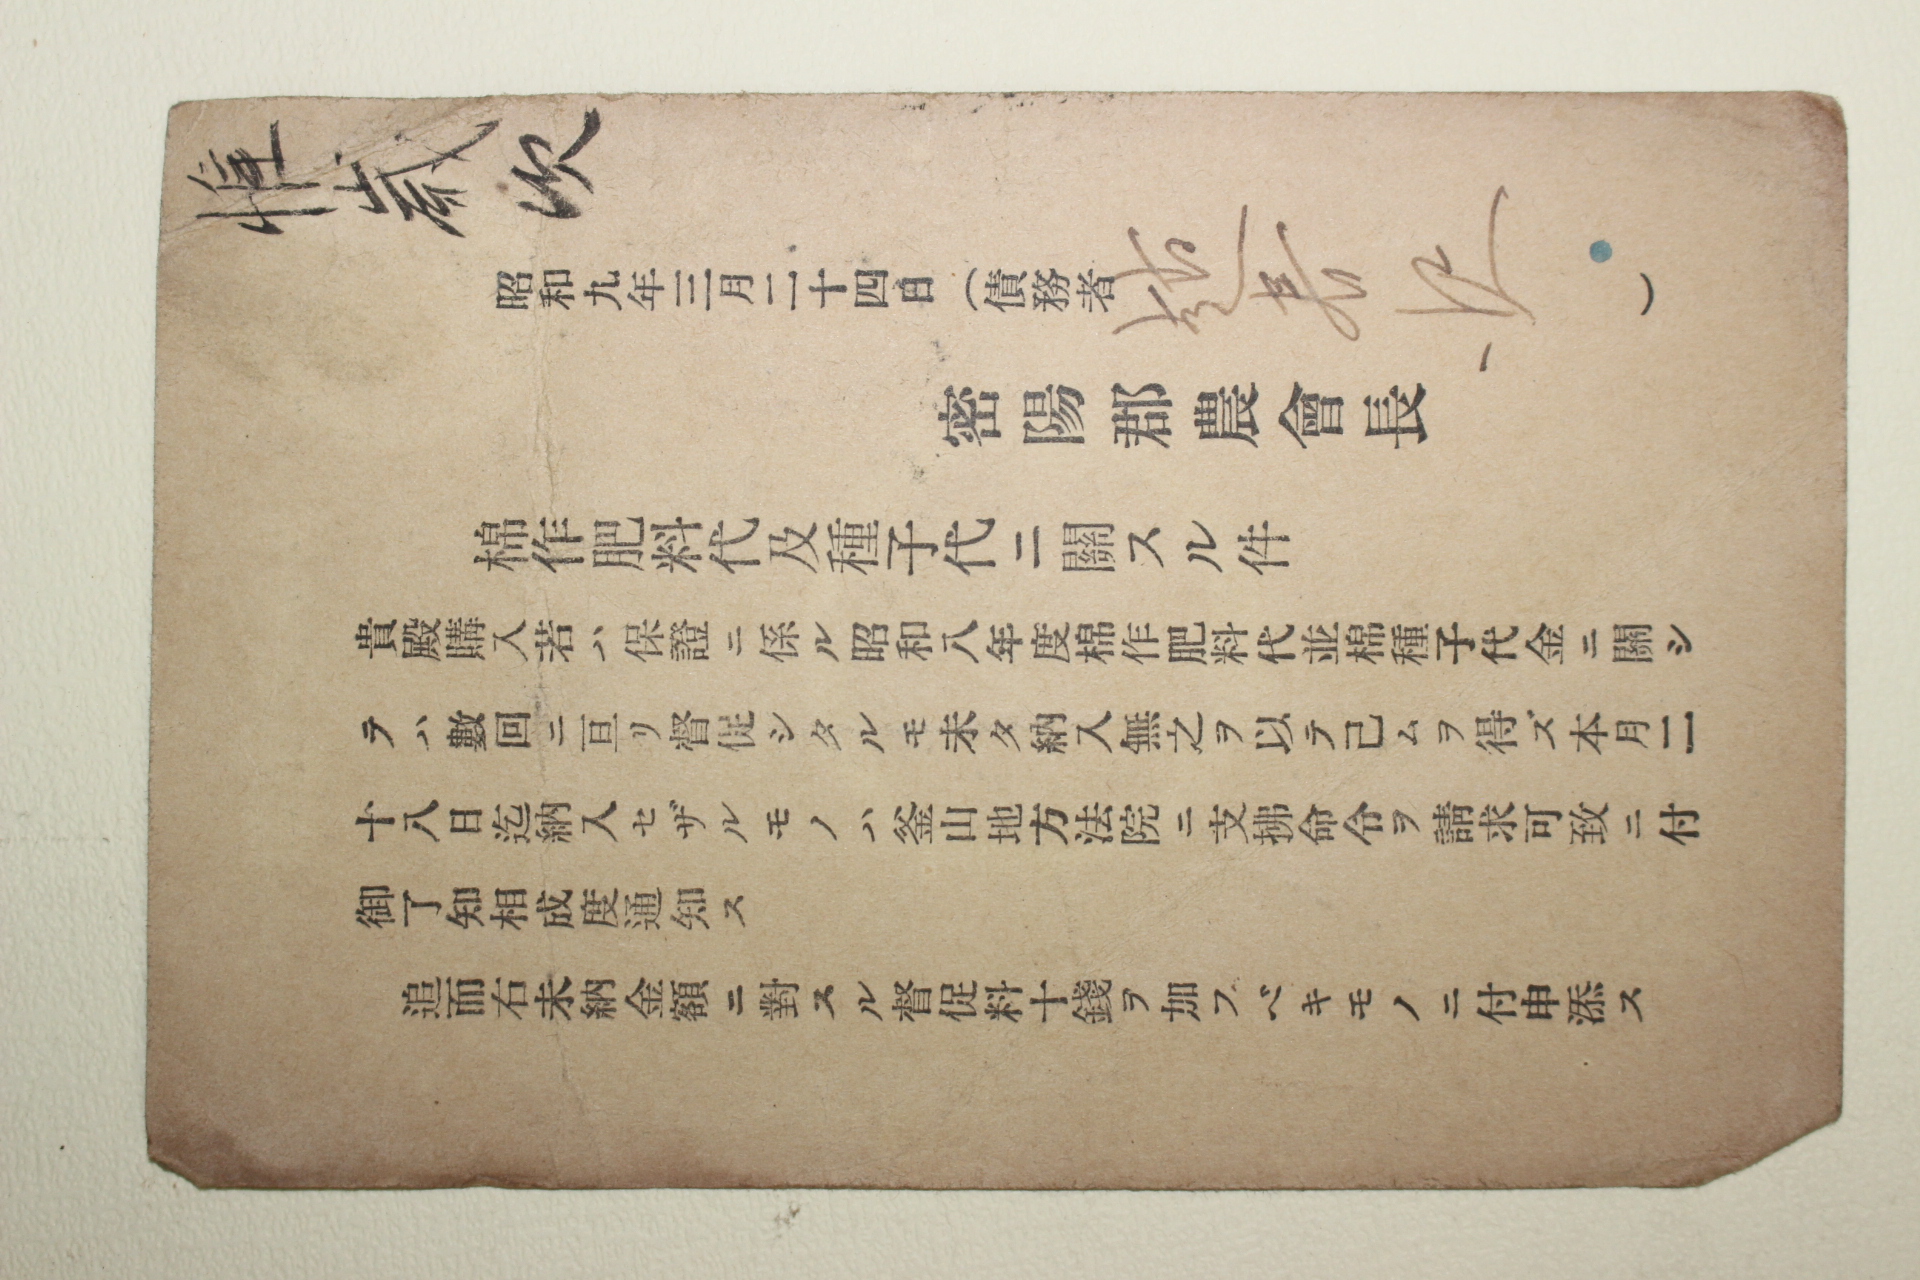 昭和九年三月二十四日（債務者 ）
密陽郡農會長
棉作肥料代及種子代ニ關スル件
貴殿購入若ハ保證ニ係ル昭和八年度棉作肥料代並棉種子代金ニ關シ
テハ數回ニ亘リ督促シタルモ未タ納入無之ヲ以テ己ムヲ得ズ本月二
十八日迄納入セザルモノハ釜山地方法院ニ支拂命令ヲ請求可致ニ付
御了知相成度通知ス
追而右未納金額ニ對スル督促料十錢ヲ加フベキモノニ付申添ス